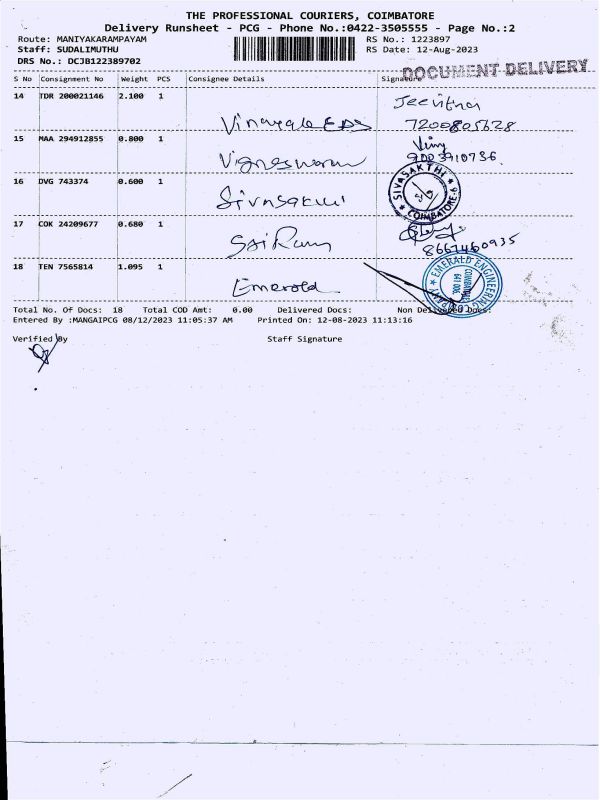 THE PROFESSIONAL COURIERS, COIMBATORE
Delivery Runsheet - PCG - Phone No.:0422-3505555 - Page No.:2
Route: MANIYAKARAMPAYAM RS No.: 1223897
Staff: SUDALIMUTHU RS Date: 12-Aug-2023
DRS No.: DCJB122389702
DOCUMENT DELIVERY
S No Consignment No Weight PCS Consignee Details Signature
14 TDR 200021146 2.100 1 Jeevitha
Vinayaka EDS 7200805628
15 MAA 294912855 0.800 1
Vigneswaran 9003910736
16 DVG 743374 0.600 1 SIVASAKTHI
Sivasakthi COIMBATORE-6
17 COK 24209677 0.680 1
Sai Ram 8667460935
18 TEN 7565814 1.095 1 EMERALD ENGINEERING COMPANY
Emerald COIMBATORE 641 006.
Total No. Of Docs: 18 Total COD Amt: 0.00 Delivered Docs: Non Delivered Docs:
Entered By :MANGAIPCG 08/12/2023 11:05:37 AM Printed On: 12-08-2023 11:13:16
Verified By Staff Signature